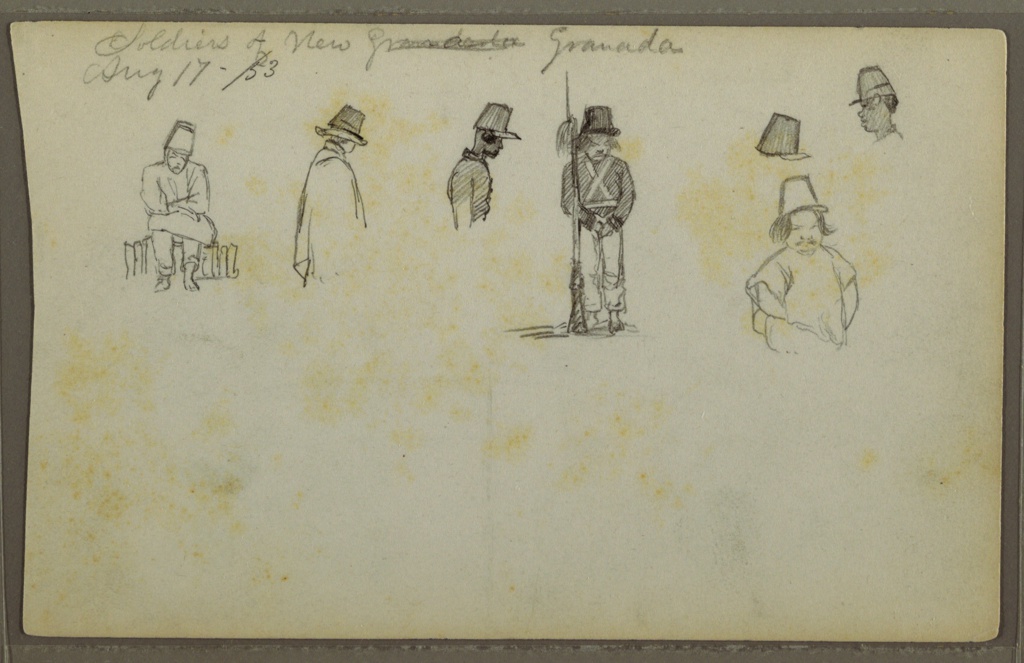 Soldiers of New Granada
Aug 17 - /53